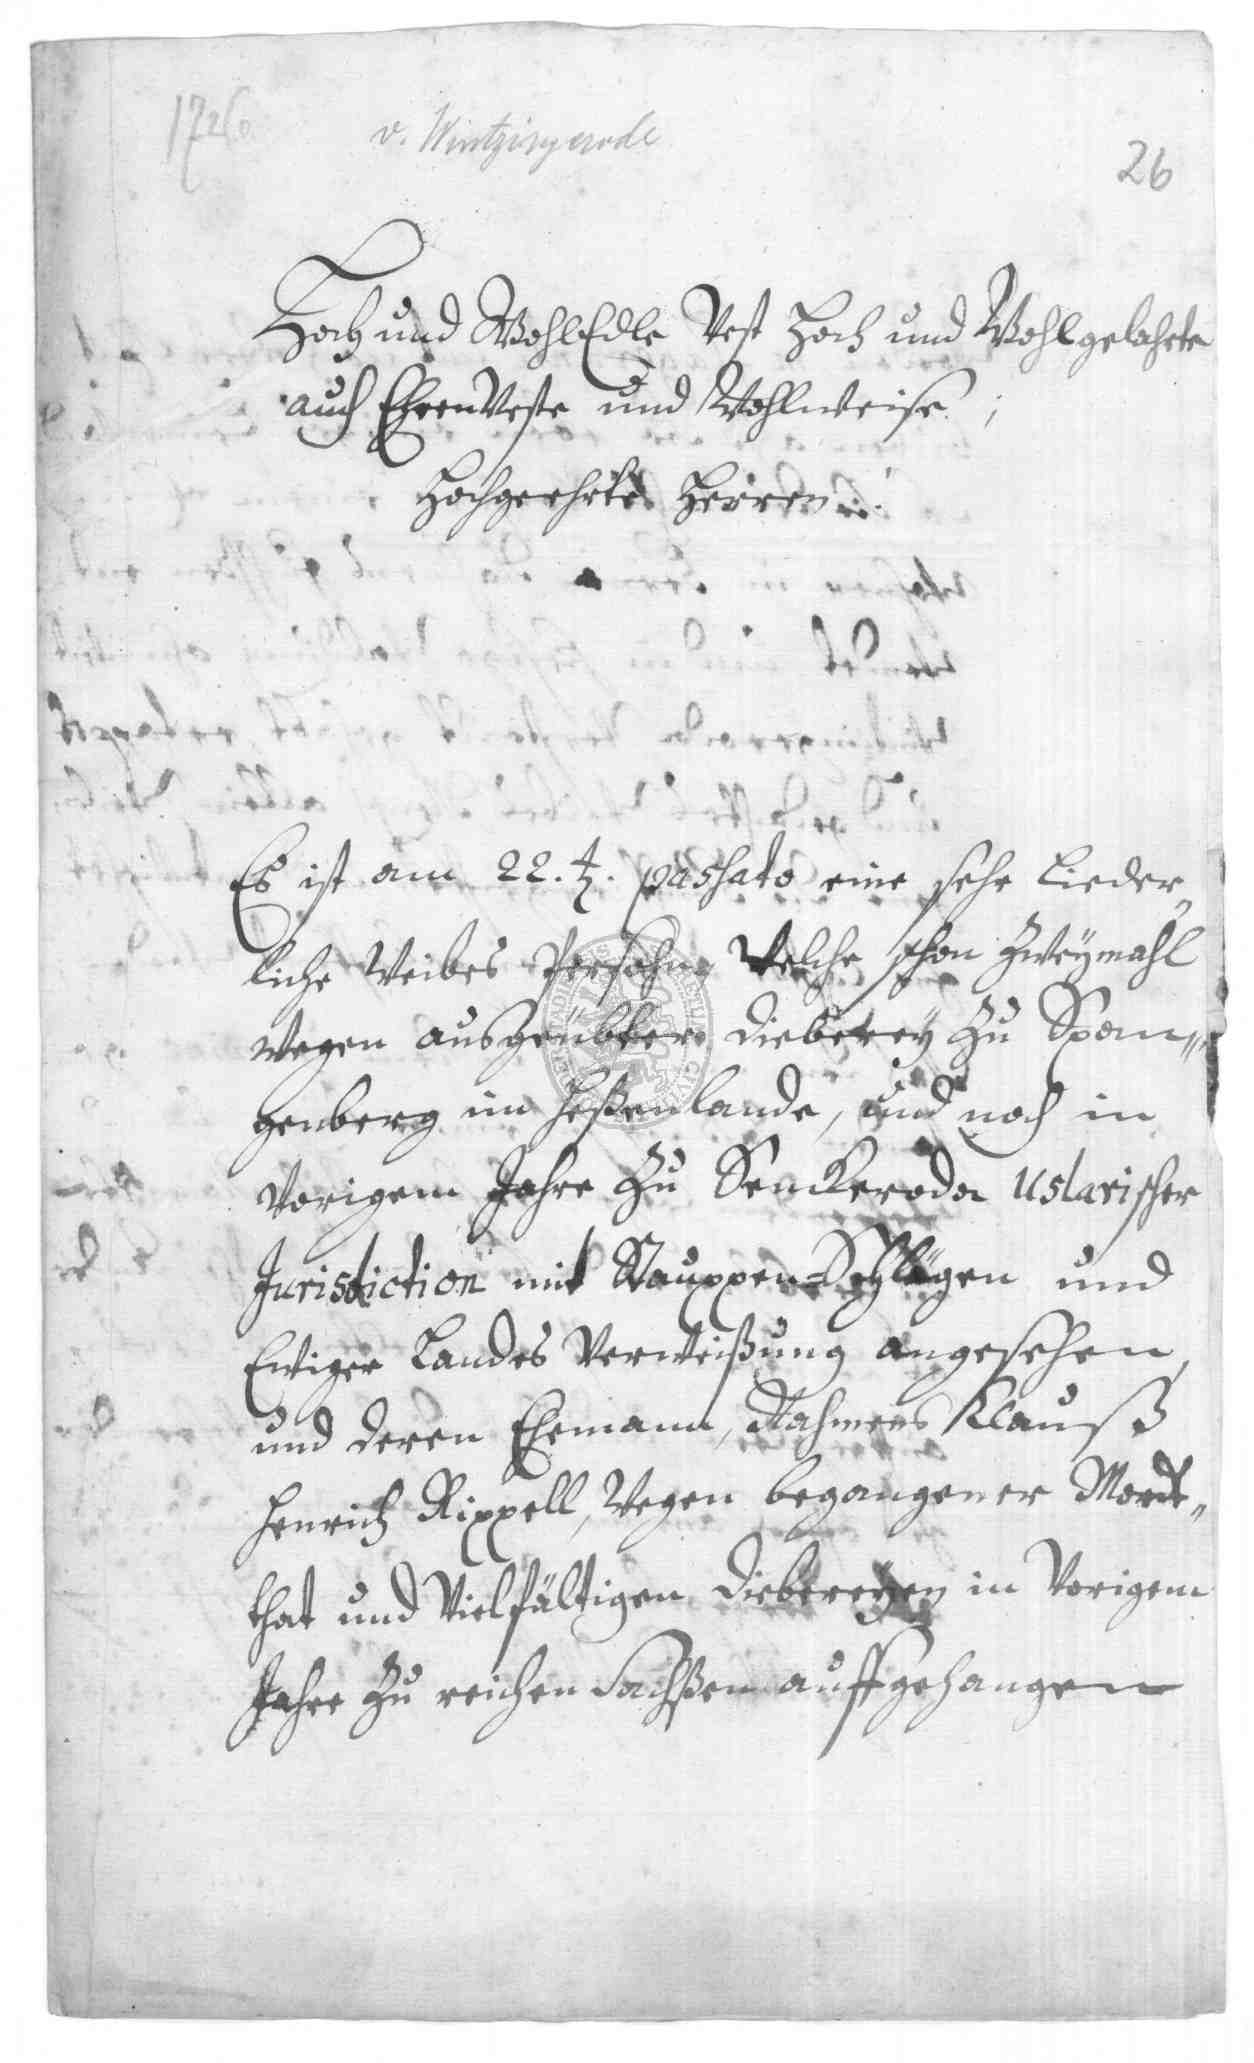 1726
v. Wintzingerode
26
Hoch und WohlEdle Vest Hoch und Wohlgelahrte
auch EhrenVeste und Wohlweise,
Hochgeehrte Herren
Es ist am 22. passato eine sehr Lieder„
liche Weibes Persohn, Welche schon Zweymahl
wegen ausgeübter Dieberey zu Span„
genberg im Heßenlande, und noch in
Vorigem Jahre zu Senckeroda Uslarischer
Jurisdiction mit Stauppen-Schlägen und
Ewiger Landes Verweißung angesehen,
und deren Ehemann, Nahmens Clauß
Henrich Rippell, Wegen begangener Mordt„
that und Vielfältigen Diebereyen in Vorigem
Jahre zu reichen Sachßen auffgehangen